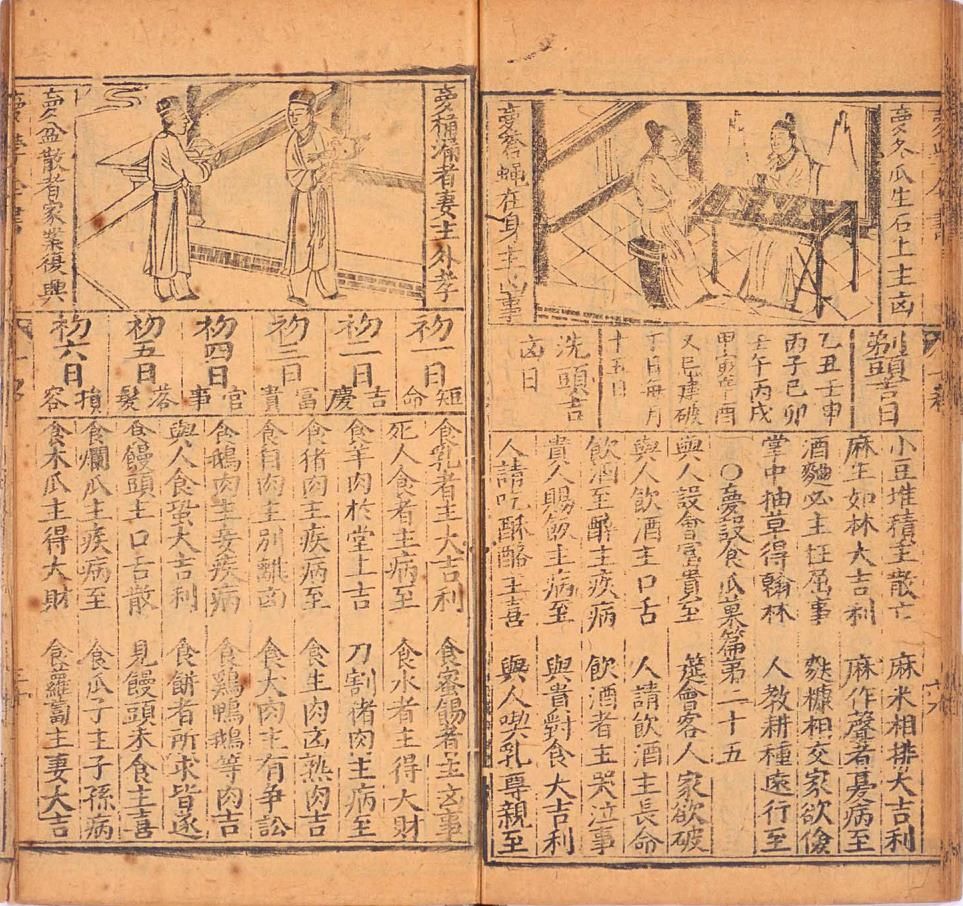 夢冬瓜生石上主凶
夢蒼蠅在身主事
剃頭吉日
乙丑壬申
丙子己卯
壬午丙戌
又忌建破
丁日每月
十五日
洗頭吉
凶日
小豆堆積主散亡 麻米相排大吉利
麻生如林大吉利 麻作聲者憂病至
酒麯必主枉屈事 麩糠相交家欲儉
掌中抽草得翰林 人教耕種遠行至
○夢設食瓜果篇第二十五
與人設會富貴至 筵會客人家欲破
與人飲酒主口舌 人請飲酒主長命
飲酒至醉主疾病 飲酒者主哭泣事
貴人賜飲主病至 與貴對食大吉利
人請吃酥酪主喜 與人喫乳尊親至
夢桶漏者妻主外孝
夢盆散者家業復興
初一日 短命
初二日 吉慶
初三日 富貴
初四日 官事
初五日 落髮
初六日 損容
食乳者主大吉利 食蜜錫者主凶事
死人食者主病至 食水者主得大財
食羊肉於堂上吉 刀割猪肉主病至
食猪肉主疾病至 食生肉凶熟肉吉
食自肉主別離凶 食犬肉主有争訟
食鵝肉主妾疾病 食鷄鴨鵝等肉吉
與人食蛋大吉利 食餅者所求皆遂
食饅頭主口舌散 見饅頭未食主喜
食爛瓜主疾病至 食瓜子主子孫病
食木瓜主得大財 食蘿蔔主妻大吉